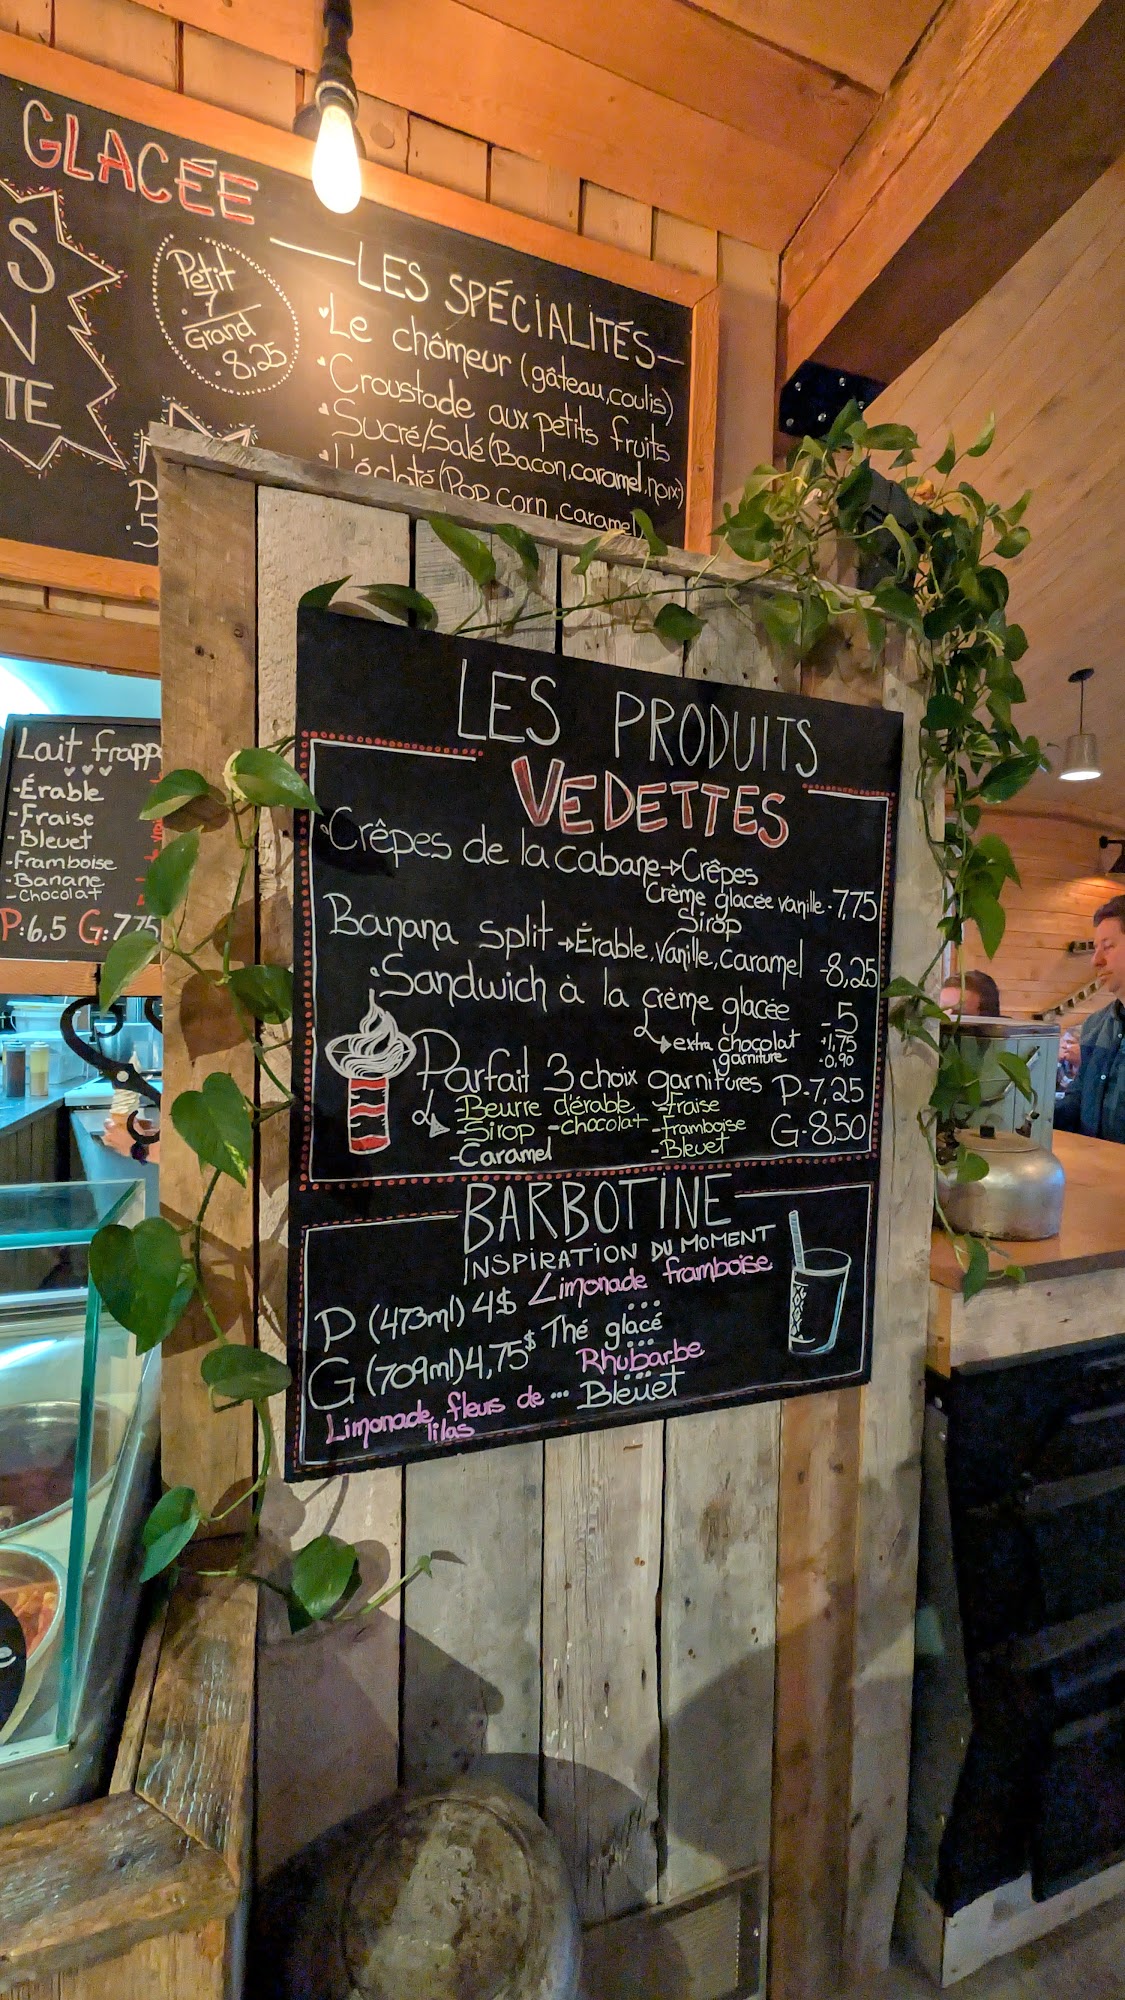 GLACÉE
S
N
TE
Petit
. 7
Grand
. 8,25
LES SPÉCIALITÉS
Le chômeur (gâteau, coulis)
Croustade aux petits fruits
Sucré/Salé (Bacon, caramel, noix)
L'éclaté (Pop corn, caramel)
P
5
Lait frapp
-Érable
-Fraise
-Bleuet
-Framboise
-Banane
-Chocolat
P:6,5 G:7,75
LES PRODUITS
VEDETTES
Crêpes de la cabane → Crêpes
Crème glacée vanille - 7,75
Sirop
Banana split → Érable, Vanille, caramel - 8,25
Sandwich à la crème glacée - 5
extra chocolat +1,75
garniture -0,90
Parfait 3 choix garnitures P-7,25
-Beurre d'érable -Fraise
-Sirop -chocolat -Framboise G-8,50
-Caramel -Bleuet
BARBOTINE
INSPIRATION DU MOMENT
P (473ml) 4$ Limonade framboise
G (709ml) 4,75$ Thé glacé
Rhubarbe
Limonade fleurs de ... Bleuet
lilas
e